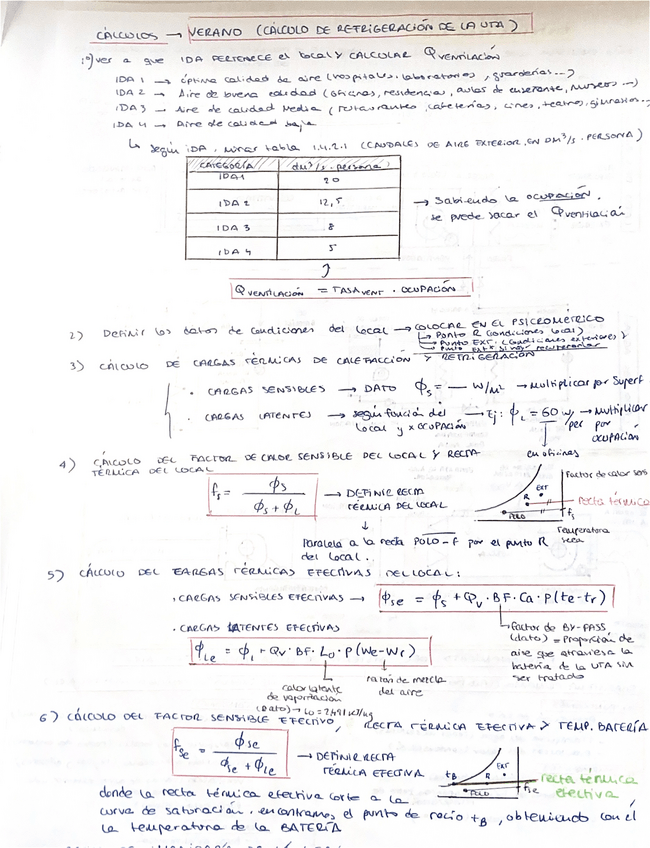 CÁLCULOS → VERANO (CÁLCULO DE REFRIGERACIÓN DE LA UTA)
1º) ver a que IDA PERTENECE el local y CALCULAR QVENTILACIÓN
IDA 1 → óptima calidad de aire (hospitales, laboratorios, guarderías...)
IDA 2 → Aire de buena calidad (oficinas, residencias, aulas de enseñanza, museos...)
IDA 3 → Aire de calidad Media (restaurantes, cafeterías, cines, teatros, gimnasios...
IDA 4 → Aire de calidad baja
↳ según IDA, mirar tabla 1.4.2.1 (CAUDALES DE AIRE EXTERIOR, EN DM³/s. PERSONA)
CATEGORÍA dm³/s. persona
IDA 1 20
IDA 2 12,5
IDA 3 8
IDA 4 5
→ Sabiendo la OCUPACIÓN,
se puede sacar el Qventilación
QVENTILACIÓN = TASAVENT · OCUPACIÓN
2) Definir los datos de condiciones del local → COLOCAR EN EL PSICROMÉTRICO
↳ Punto R (condiciones local)
↳ Punto EXT. (condiciones exteriores)
↳ Punto EXT* si hay recuperador
3) CÁLCULO DE CARGAS TÉRMICAS DE CALEFACCIÓN Y REFRIGERACIÓN
. CARGAS SENSIBLES → DATO ϕs = — W/m² → multiplicar por Superf
. CARGAS LATENTES → según función del local y x OCUPACIÓN → Ej: ϕL = 60 W/per → Multiplicar por OCUPACIÓN
en oficinas
4) CÁLCULO DEL FACTOR DE CALOR SENSIBLE DEL LOCAL Y RECTA
TÉRMICA DEL LOCAL
fs = ϕs / ϕs + ϕL → DEFINIR RECTA TÉRMICA DEL LOCAL
Factor de calor sens
EXT
R
recta térmica
POLO
fs
Temperatura seca
↓
Paralela a la recta POLO-F por el punto R
del local.
5) CÁLCULO DEL CARGAS TÉRMICAS EFECTIVAS DEL LOCAL:
. CARGAS SENSIBLES EFECTIVAS → ϕse = ϕs + Qv · BF · Ca · ρ (te-tr)
↳ Factor de BY-PASS
(dato) = Proporción de
aire que atraviesa la
batería de la UTA sin
ser tratado
. CARGAS LATENTES EFECTIVAS
ϕLe = ϕL + Qv · BF · Lo · ρ (We-Wr)
calor latente
de vaporización
(Dato) → Lo = 2491 kJ/kg
razón de mezcla
del aire
6) CÁLCULO DEL FACTOR SENSIBLE EFECTIVO, RECTA TÉRMICA EFECTIVA Y TEMP. BATERÍA
fse = ϕse / ϕse + ϕLe → DEFINIR RECTA TÉRMICA EFECTIVA
EXT
tB
R
recta térmica
efectiva
POLO
fse
donde la recta térmica efectiva corte a la
curva de saturación, encontramos el punto de rocío tB, obteniendo con él
la temperatura de la BATERÍA